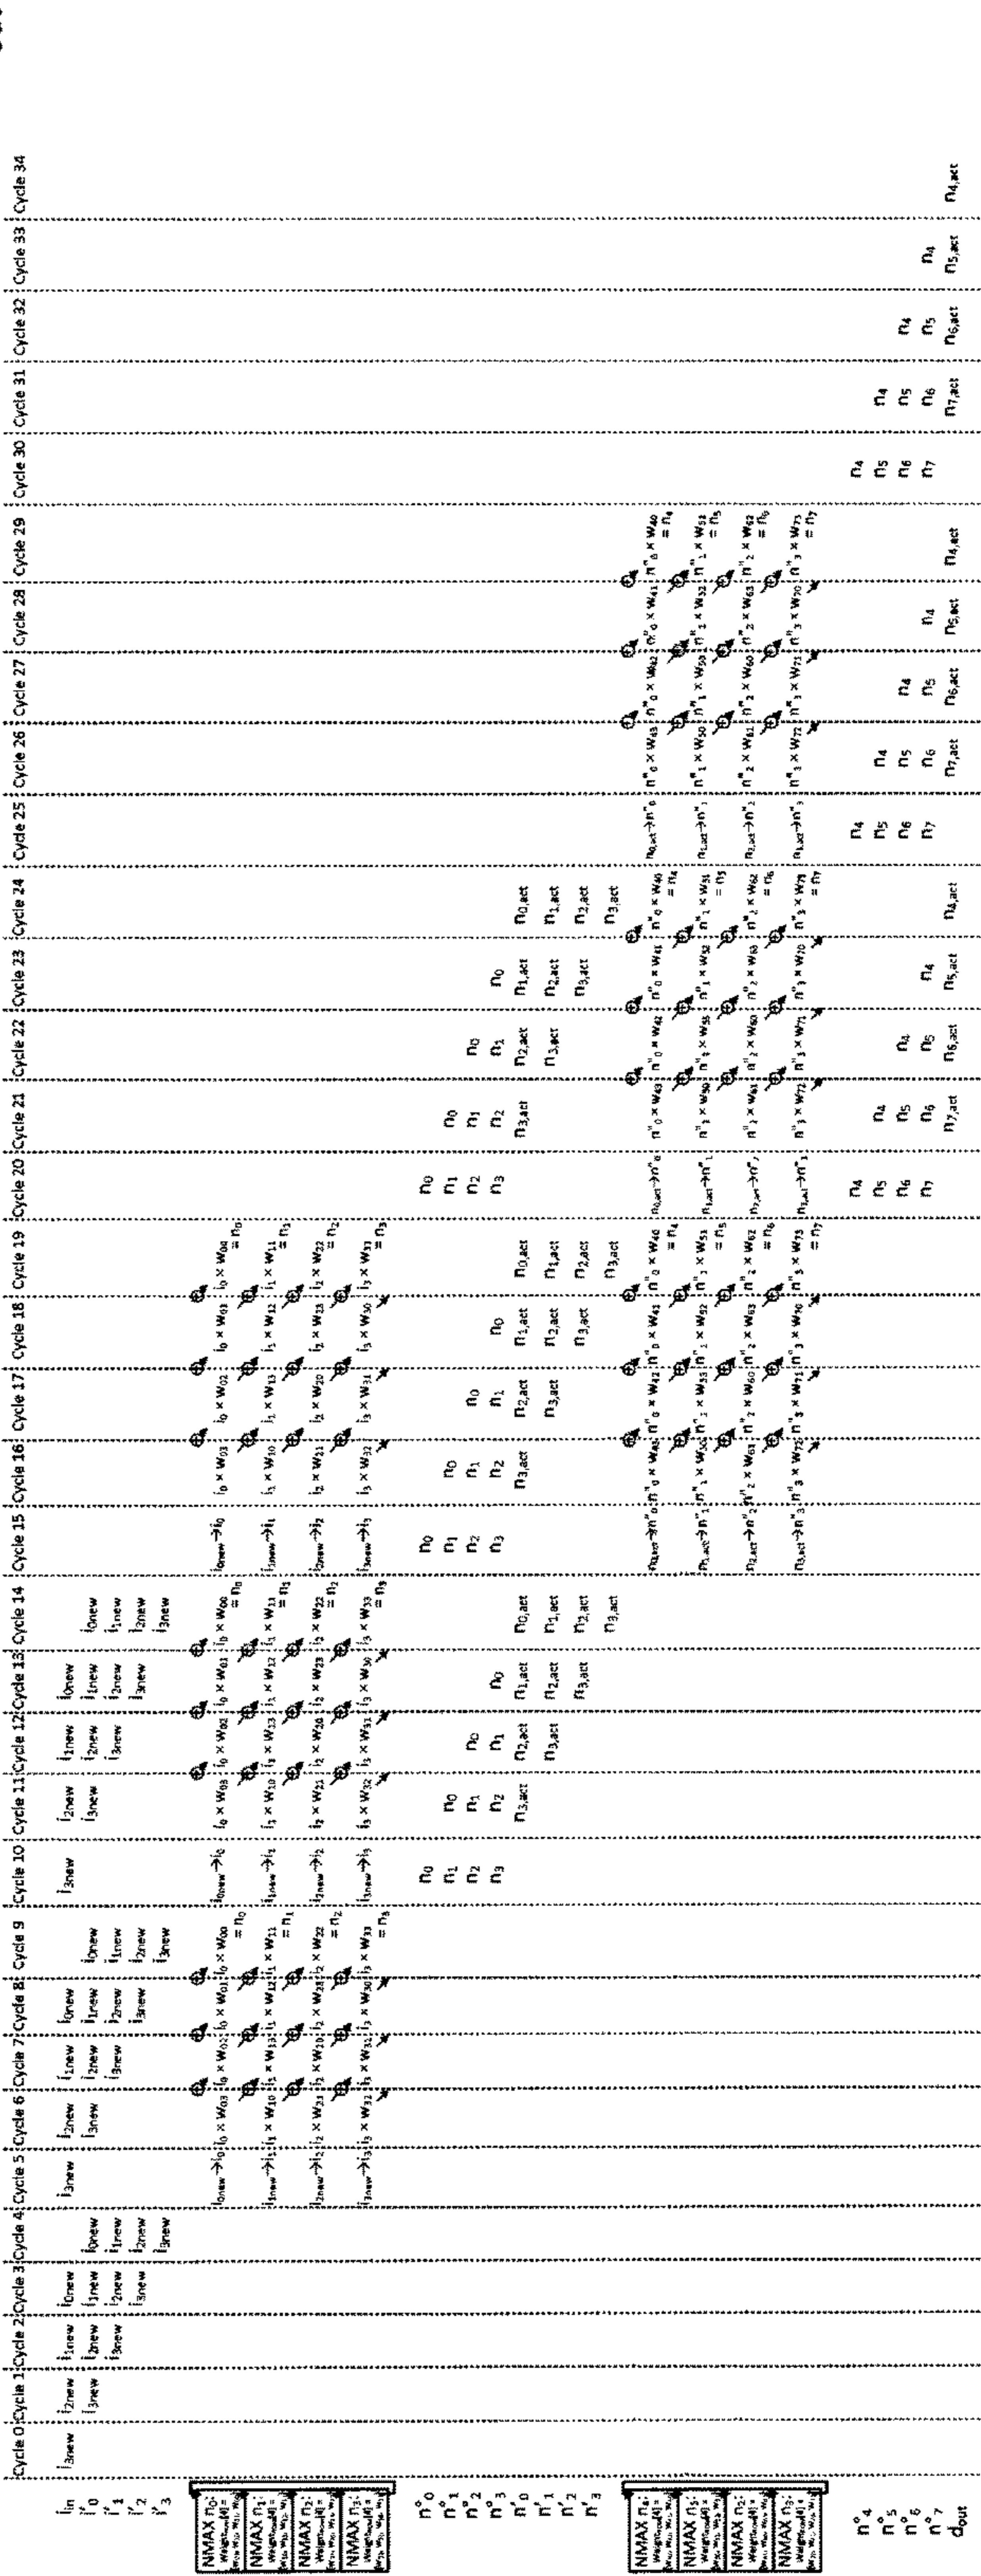 Cycle 0 Cycle 1 Cycle 2 Cycle 3 Cycle 4 Cycle 5 Cycle 6 Cycle 7 Cycle 8 Cycle 9 Cycle 10 Cycle 11 Cycle 12 Cycle 13 Cycle 14 Cycle 15 Cycle 16 Cycle 17 Cycle 18 Cycle 19 Cycle 20 Cycle 21 Cycle 22 Cycle 23 Cycle 24 Cycle 25 Cycle 26 Cycle 27 Cycle 28 Cycle 29 Cycle 30 Cycle 31 Cycle 32 Cycle 33 Cycle 34
iin i3new i2new i1new i0new i3new i2new i1new i0new i3new i2new i1new i0new
i'0 i3new i2new i1new i0new i3new i2new i1new i0new i3new i2new i1new i0new
i'1 i3new i2new i1new i3new i2new i1new i3new i2new i1new
i'2 i3new i2new i3new i2new i3new i2new
i'3 i3new i3new i3new
NMAX n0: i0new→i0 i0 × W03 i0 × W02 i0 × W01 i0 × W00 i0new→i0 i0 × W03 i0 × W02 i0 × W01 i0 × W00 i0new→i0 i0 × W03 i0 × W02 i0 × W03 i0 × W00
= n0 = n0 = n0
NMAX n1: i1new→i1 i1 × W10 i1 × W13 i1 × W12 i1 × W11 i1new→i1 i1 × W10 i1 × W13 i1 × W12 i1 × W11 i1new→i1 i1 × W10 i1 × W13 i1 × W12 i1 × W11
= n1 = n1 = n1
NMAX n2: i2new→i2 i2 × W21 i2 × W20 i2 × W23 i2 × W22 i2new→i2 i2 × W21 i2 × W20 i2 × W23 i2 × W22 i2new→i2 i2 × W21 i2 × W20 i2 × W23 i2 × W22
= n2 = n2 = n2
NMAX n3: i3new→i3 i3 × W32 i3 × W31 i3 × W30 i3 × W33 i3new→i3 i3 × W32 i3 × W31 i3 × W30 i3 × W33 i3new→i3 i3 × W32 i3 × W31 i3 × W30 i3 × W33
= n3 = n3 = n3
n°0 n0 n0 n0
n°1 n1 n0 n1 n0 n1 n0
n°2 n2 n1 n0 n2 n1 n0 n2 n1 n0
n°3 n3 n2 n1 n0 n3 n2 n1 n0 n3 n2 n1 n0
n'0 n3,act n2,act n1,act n0,act n3,act n2,act n1,act n0,act n3,act n2,act n1,act n0,act
n'1 n3,act n2,act n1,act n3,act n2,act n1,act n3,act n2,act n1,act
n'2 n3,act n2,act n3,act n2,act n3,act n2,act
n'3 n3,act n3,act n3,act
NMAX n4: n0,act→n"0 n"0 × W43 n"0 × W42 n"0 × W41 n"0 × W40 n0,act→n"0 n"0 × W43 n"0 × W42 n"0 × W41 n"0 × W40 n0,act→n"0 n"0 × W43 n"0 × W42 n"0 × W41 n"0 × W40
= n4 = n4 = n4
NMAX n5: n1,act→n"1 n"1 × W50 n"1 × W53 n"1 × W52 n"1 × W51 n1,act→n"1 n"1 × W50 n"1 × W53 n"1 × W52 n"1 × W51 n1,act→n"1 n"1 × W50 n"1 × W53 n"1 × W52 n"1 × W51
= n5 = n5 = n5
NMAX n2: n2,act→n"2 n"2 × W61 n"2 × W60 n"2 × W63 n"2 × W62 n2,act→n"2 n"2 × W61 n"2 × W60 n"2 × W63 n"2 × W62 n2,act→n"2 n"2 × W61 n"2 × W60 n"2 × W63 n"2 × W62
= n6 = n6 = n6
NMAX n3: n3,act→n"3 n"3 × W72 n"3 × W71 n"3 × W70 n"3 × W73 n3,act→n"3 n"3 × W72 n"3 × W71 n"3 × W70 n"3 × W73 n3,act→n"3 n"3 × W72 n"3 × W71 n"3 × W70 n"3 × W73
= n7 = n7 = n7
n°4 n4 n4 n4
n°5 n5 n4 n5 n4 n5 n4
n°6 n6 n5 n4 n6 n5 n4 n6 n5 n4
n°7 n7 n6 n5 n4 n7 n6 n5 n4 n7 n6 n5 n4
dout n7,act n6,act n5,act n4,act n7,act n6,act n5,act n4,act n7,act n6,act n5,act n4,act